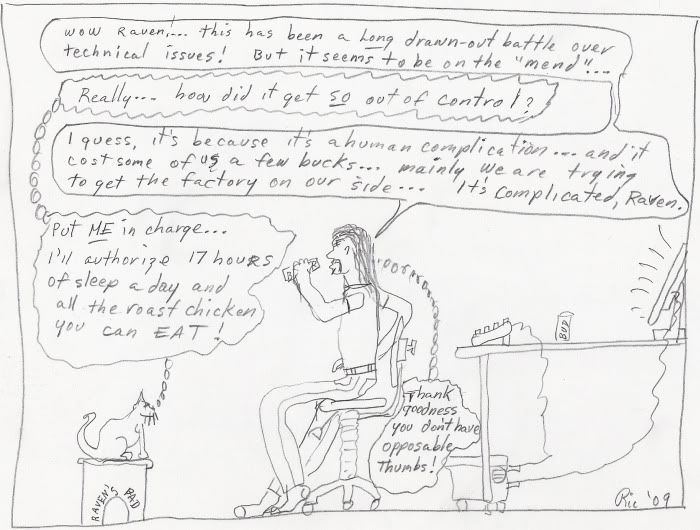 wow Raven!... this has been a Long drawn-out battle over
technical issues! But it seems to be on the "mend"...
Really... how did it get so out of control?
I guess, it's because it's a human complication... and it
cost some of us a few bucks... mainly we are trying
to get the factory on our side... It's complicated, Raven.
Put ME in charge...
I'll authorize 17 hours
of sleep a day and
all the roast chicken
you can EAT!
Thank
goodness
you don't have
opposable
Thumbs!
BUD
RAVEN'S PAD
Ric '09